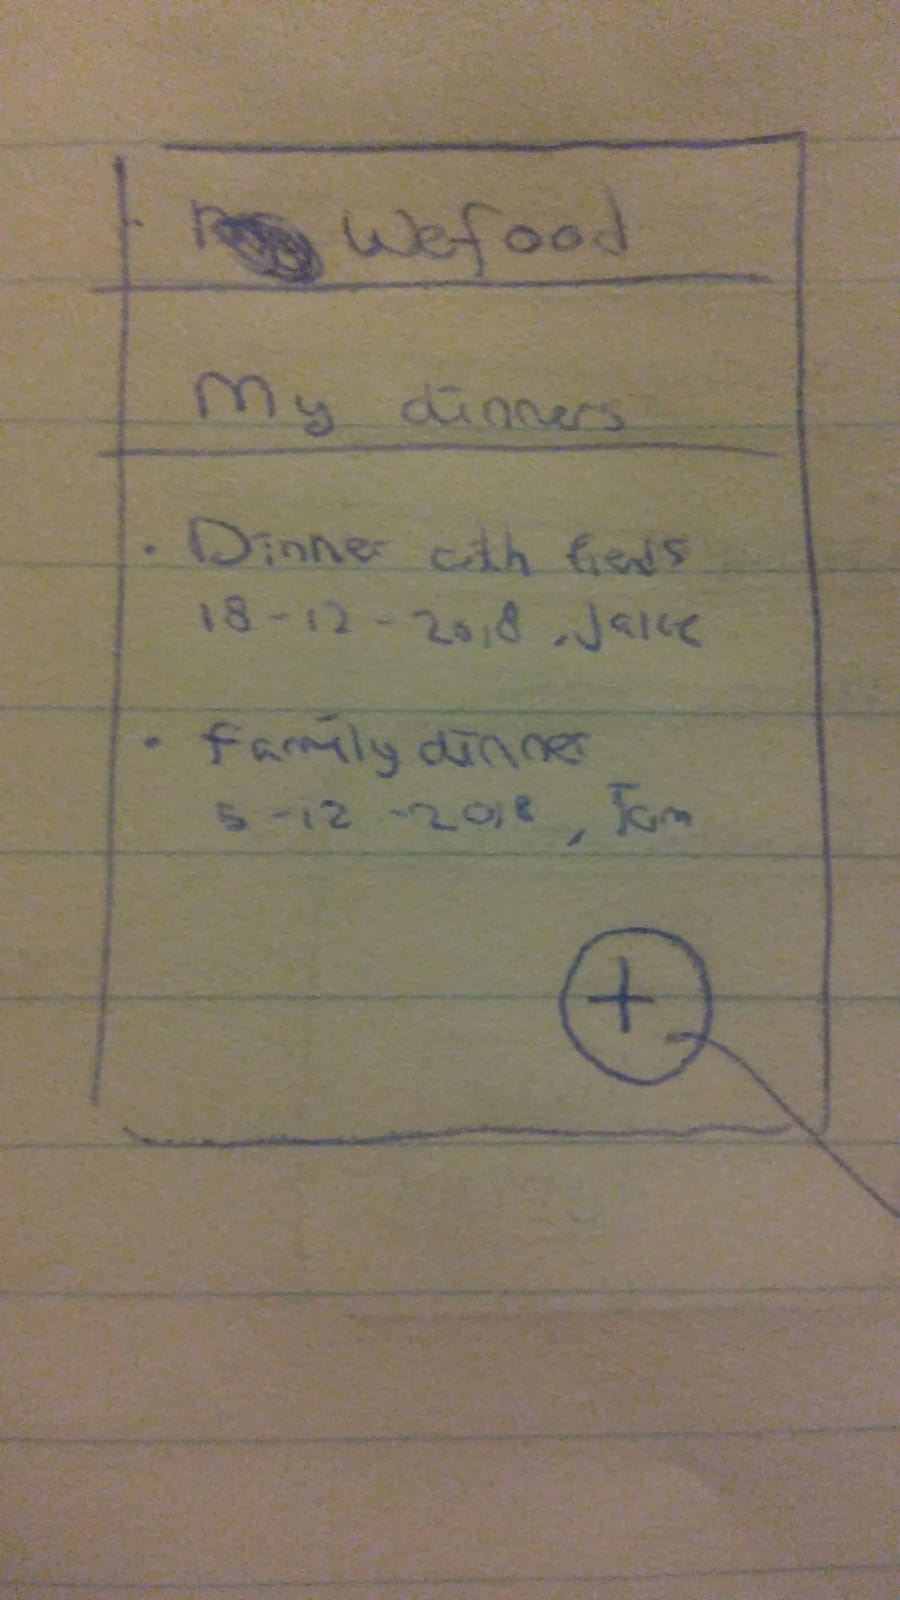 Wefood
My dinners
Dinner with friends
18-12-2018, Jake
Family dinner
5-12-2018, Tom
+